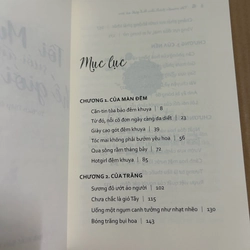 Mục lục
CHƯƠNG 1. CỦA MÀN ĐÊM
Căn-tin tòa báo đêm khuya | 8
Từ đó, nỗi cô đơn ngày càng da diết | 23
Giày cao gót đêm khuya | 40
Tóc mai không phải bướm yêu hoa | 56
Qua sông rằm tháng bảy | 72
Hotgirl đêm khuya | 85
CHƯƠNG 2. CỦA TRĂNG
Sương đỏ ướt áo người | 102
Chưa chắc là gió Tây | 115
Uống một ngụm canh tưởng như nhạt nhẽo | 130
Bóng trăng bụi hoa | 143